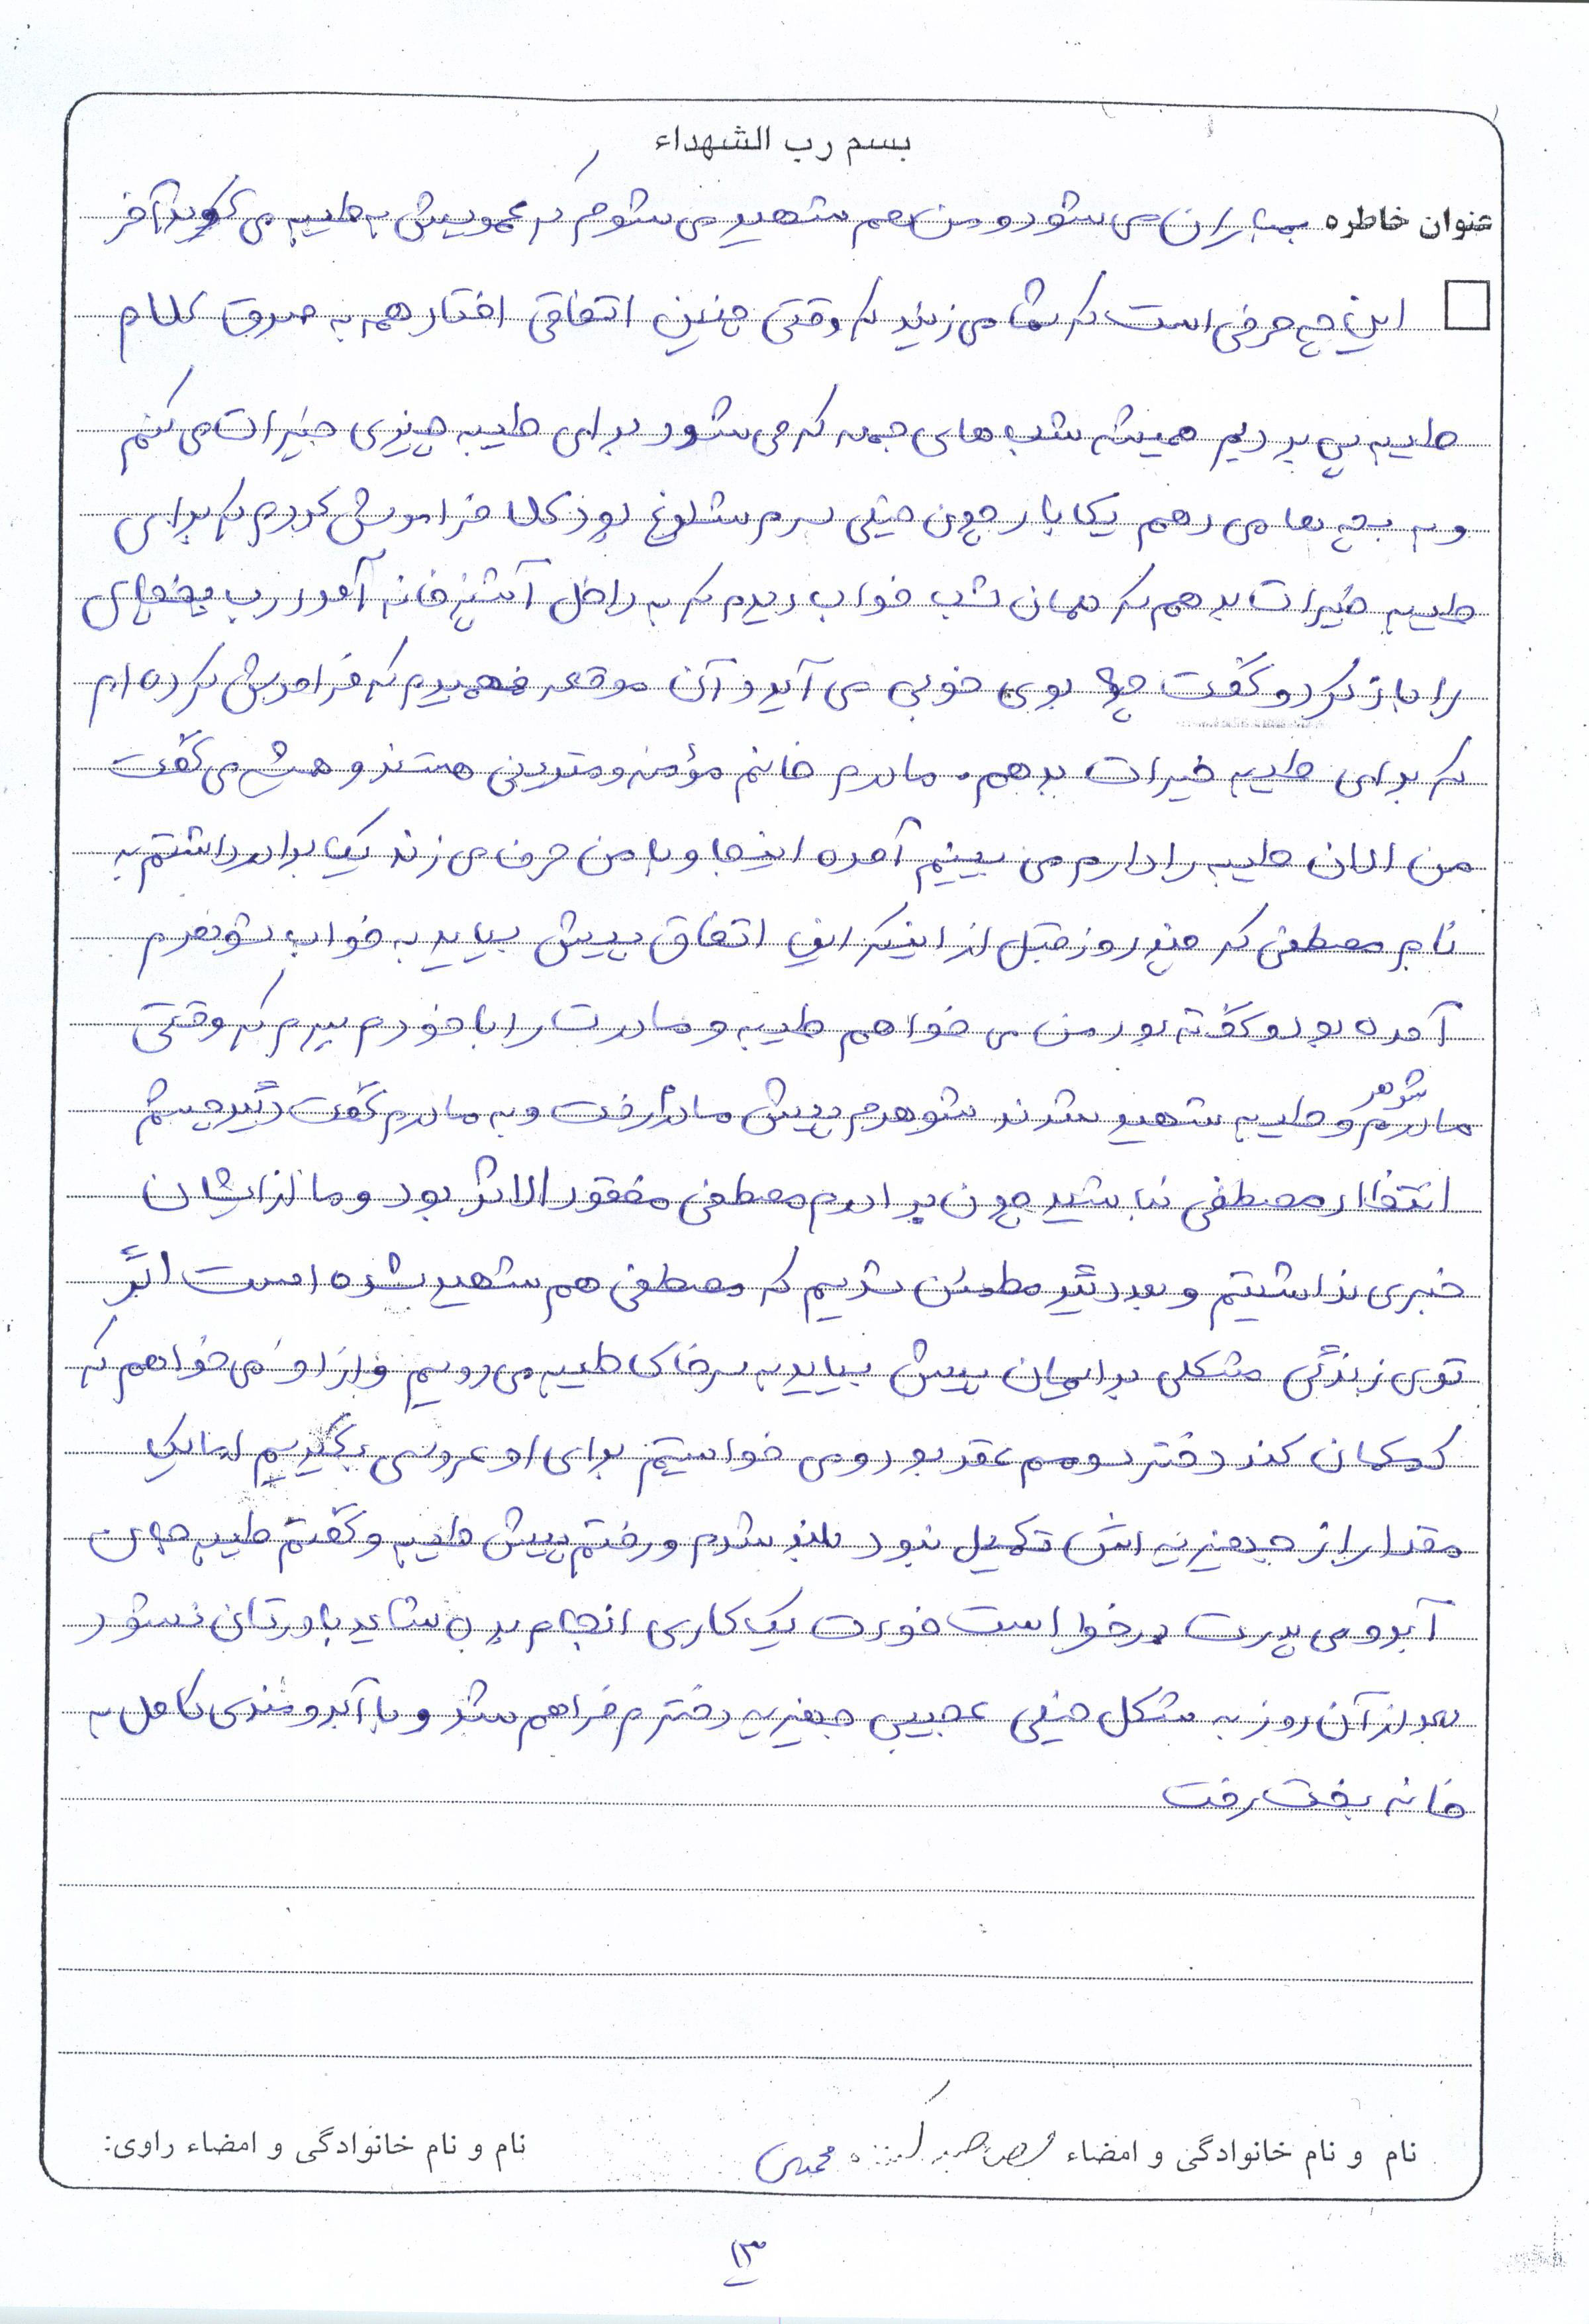 بسم رب الشهداء
عنوان خاطره بمباران می شود و من هم شهید می شوم که عمویش به طیبه می گوید آخر
این چه حرفی است که شما می زنید که وقتی چنین اتفاقی افتاد همه به صدق کلام
طیبه پی بردیم همیشه شب های جمعه که می شود برای طیبه چیزی خیرات می کنم
و به بچه ها می دهم یکبار چون خیلی سرم شلوغ بود کلا فراموش کردم که برای
طیبه خیرات بدهم که همان شب خواب دیدم که به داخل آشپزخانه آمد درب یخچال
را باز کرد و گفت چه بوی خوبی می آید و آن موقعه فهمیدم که فراموش کرده ام
که برای طیبه خیرات بدهم. مادرم خانم مؤمنه و متدینی هستند و همش می گفت
من الان طیبه را دارم می بینیم آمده اینجا و با من حرف می زند یک برادر داشتم به
نام مصطفی که چند روز قبل از اینکه این اتفاق پییش بیاید به خواب شوهرم
آمده بود و گفته بود من می خواهم طیبه و مادرت را با خودم ببرم که وقتی
مادر شوهرم و طیبه شهید شدند شوهرم پییش مادرم رفت و به مادرم گفت دیگر چیشم
انتظار مصطفی نباشید چون برادرم مصطفی مفقود الاثر بود و ما از ایشان
خبری نداشیتم و بعد دیگر مطمئن شدیم که مصطفی هم شهید شده است اگر
توی زندگی مشکلی برایمان پییش بیاید به سر خاک طیبه می رویم و از او می خواهم که
کمکمان کند دختر سومم عقد بود و می خواستیم برای او عروسی بگیریم اما یک
مقدار از جهیزیه اش تکمیل نبود بلند شدم و رفتم پییش طیبه و گفتم طیبه جان
آبروی پدرت درخواست خودت یک کاری انجام بده شاید باورتان نشود
بعد از آن روز به شکل خیلی عجیبی جهیزیه دخترم فراهم شد و با آبرومندی کامل به
خانه بخت رفت
نام و نام خانوادگی و امضاء
نام و نام خانوادگی و امضاء راوی:
۱۳